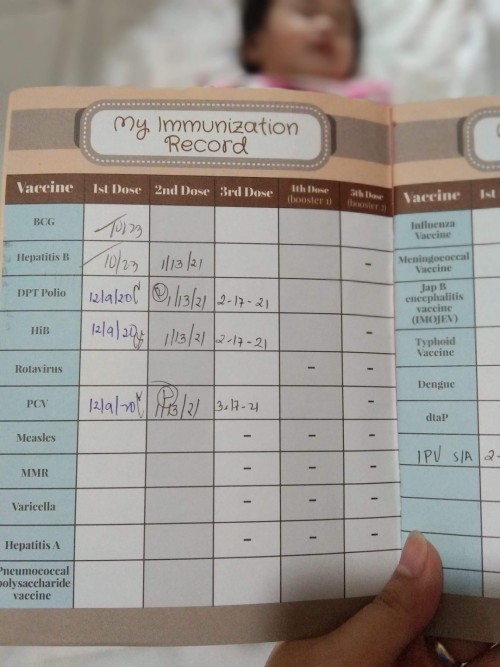 My Immunization
Record
Vaccine 1st Dose 2nd Dose 3rd Dose 4th Dose (booster 1) 5th Dose (booster 2)
BCG 10/23
Hepatitis B 10/23 1/13/21 -
DPT Polio 12/9/20 1/13/21 2-17-21
HiB 12/9/20 1/13/21 2-17-21 -
Rotavirus - -
PCV 12/9/20 1/13/21 3-17-21 -
Measles - - -
MMR - - -
Varicella - - -
Hepatitis A - - -
Pneumococcal
polysaccharide
vaccine
Vaccine 1st
Influenza
Vaccine
Meningococcal
Vaccine
Jap B
encephalitis
vaccine
(IMOJEV)
Typhoid
Vaccine
Dengue
dtaP
IPV S/A 2-